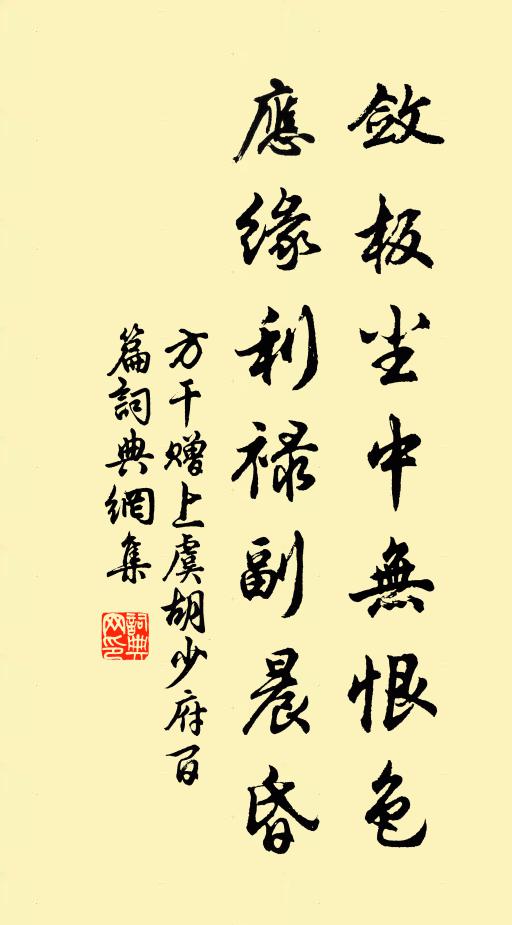 斂板尘中無恨色
應緣利祿副晨昏
方干贈上虞胡少府百
篇詞典網集
詞典
网印